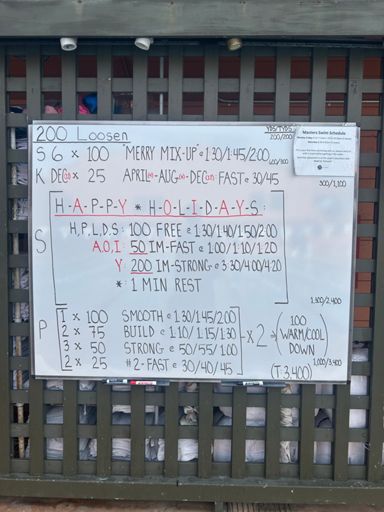 200 Loosen
YDS/TYDS
200/200
Masters Swim Schedule
S 6 x 100 "MERRY MIX-UP" @ 1:30/1:45/2:00
600/800
K DEC(12) x 25 APRIL(4)-AUG(8)-DEC(12) FAST @ 30/45
300/1,100
H-A-P-P-Y * H-O-L-I-D-A-Y-S:
S
H,P,L,D,S: 100 FREE @ 1:30/1:40/1:50/2:00
A,O,I: 50 IM-FAST @ 1:00/1:10/1:20
Y: 200 IM-STRONG @ 3:30/4:00/4:20
* 1 MIN REST
1,300/2,400
P
1 x 100 SMOOTH @ 1:30/1:45/2:00
2 x 75 BUILD @ 1:10/1:15/1:30
3 x 50 STRONG @ 50/55/1:00
2 x 25 #2-FAST @ 30/40/45
x 2 ⇒
(100
WARM/COOL
DOWN)
1,000/3,400
(T:3,400)